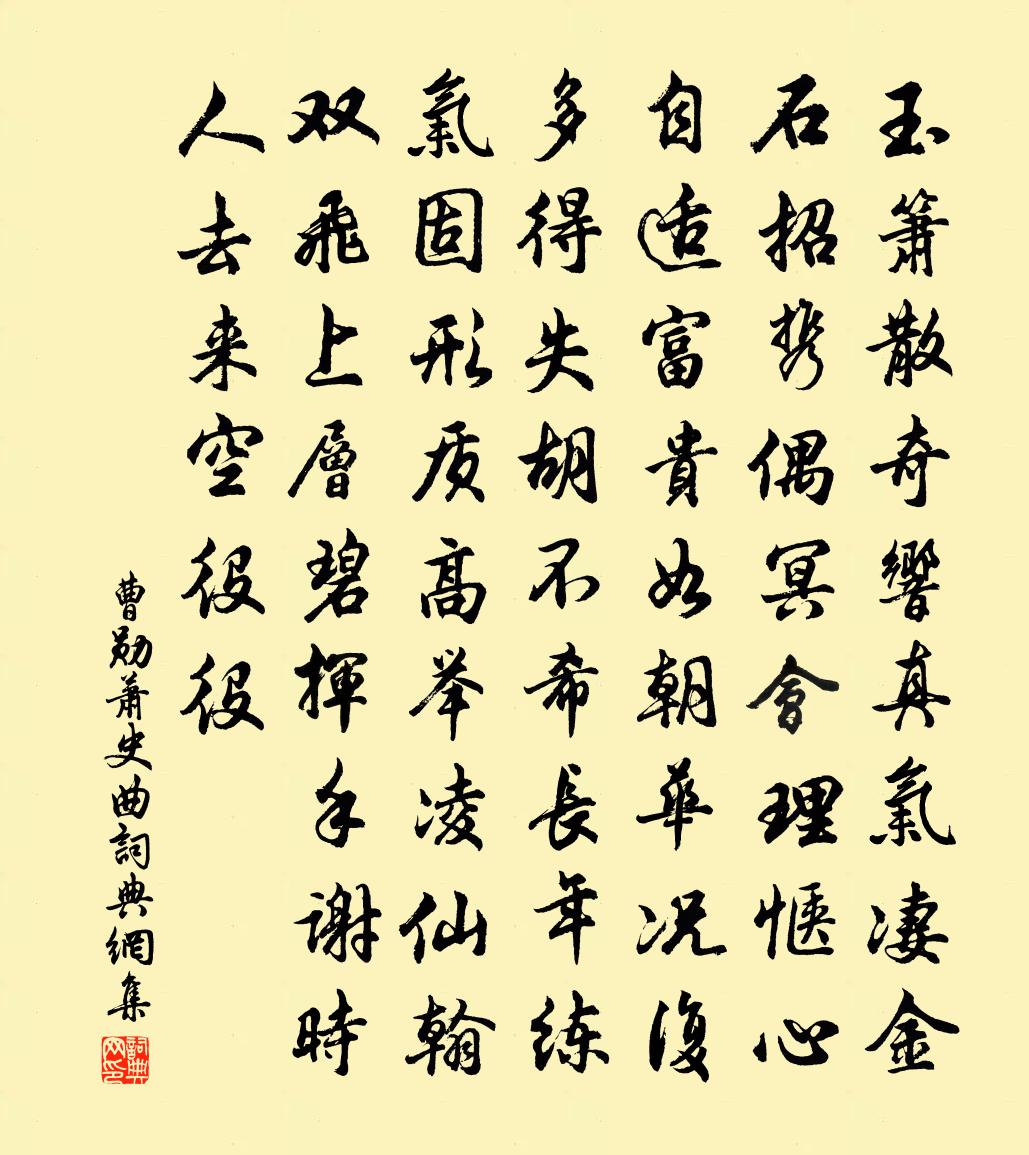 玉箫散奇響真氣凄金
石招携偶冥會理惬心
自适富貴如朝華况復
多得失胡不希長年练
氣固形质高举凌仙翰
双飛上層碧揮手谢時
人去来空役役
曹勋萧史曲詞典網集
詞典網印